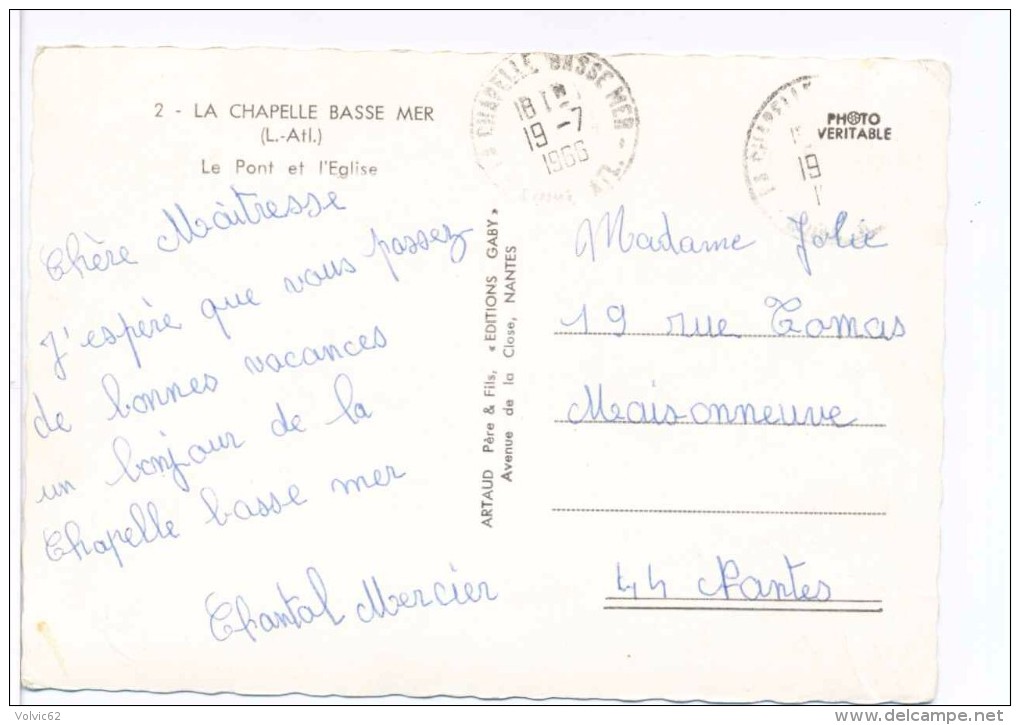 2 - LA CHAPELLE BASSE MER
(L.-Atl.)
Le Pont et l'Eglise
Chère Maîtresse
J'espère que vous passez
de bonnes vacances
un bonjour de la
Chapelle basse mer
Chantal Mercier
ARTAUD Père & Fils, « EDITIONS GABY »
Avenue de la Close, NANTES
LA CHAPELLE BASSE MER
18 H
19 -7
1966
LA CHAPELLE
19
PHOTO
VERITABLE
Madame Jolie
19 rue Tomas
Maisonneuve
44 Nantes
Volvic62
delcampe.net